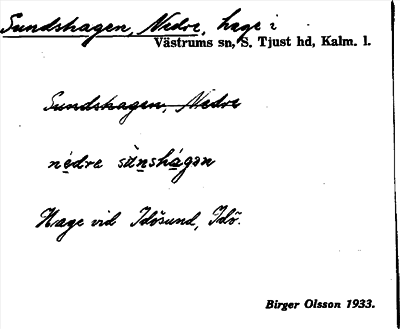 Sundshagen, Nedre, hage i
Västrums sn, S. Tjust hd, Kalm. l.
Sundshagen, Nedre
nédre sùnshágən
Hage vid Idösund, Idö.
Birger Olsson 1933.